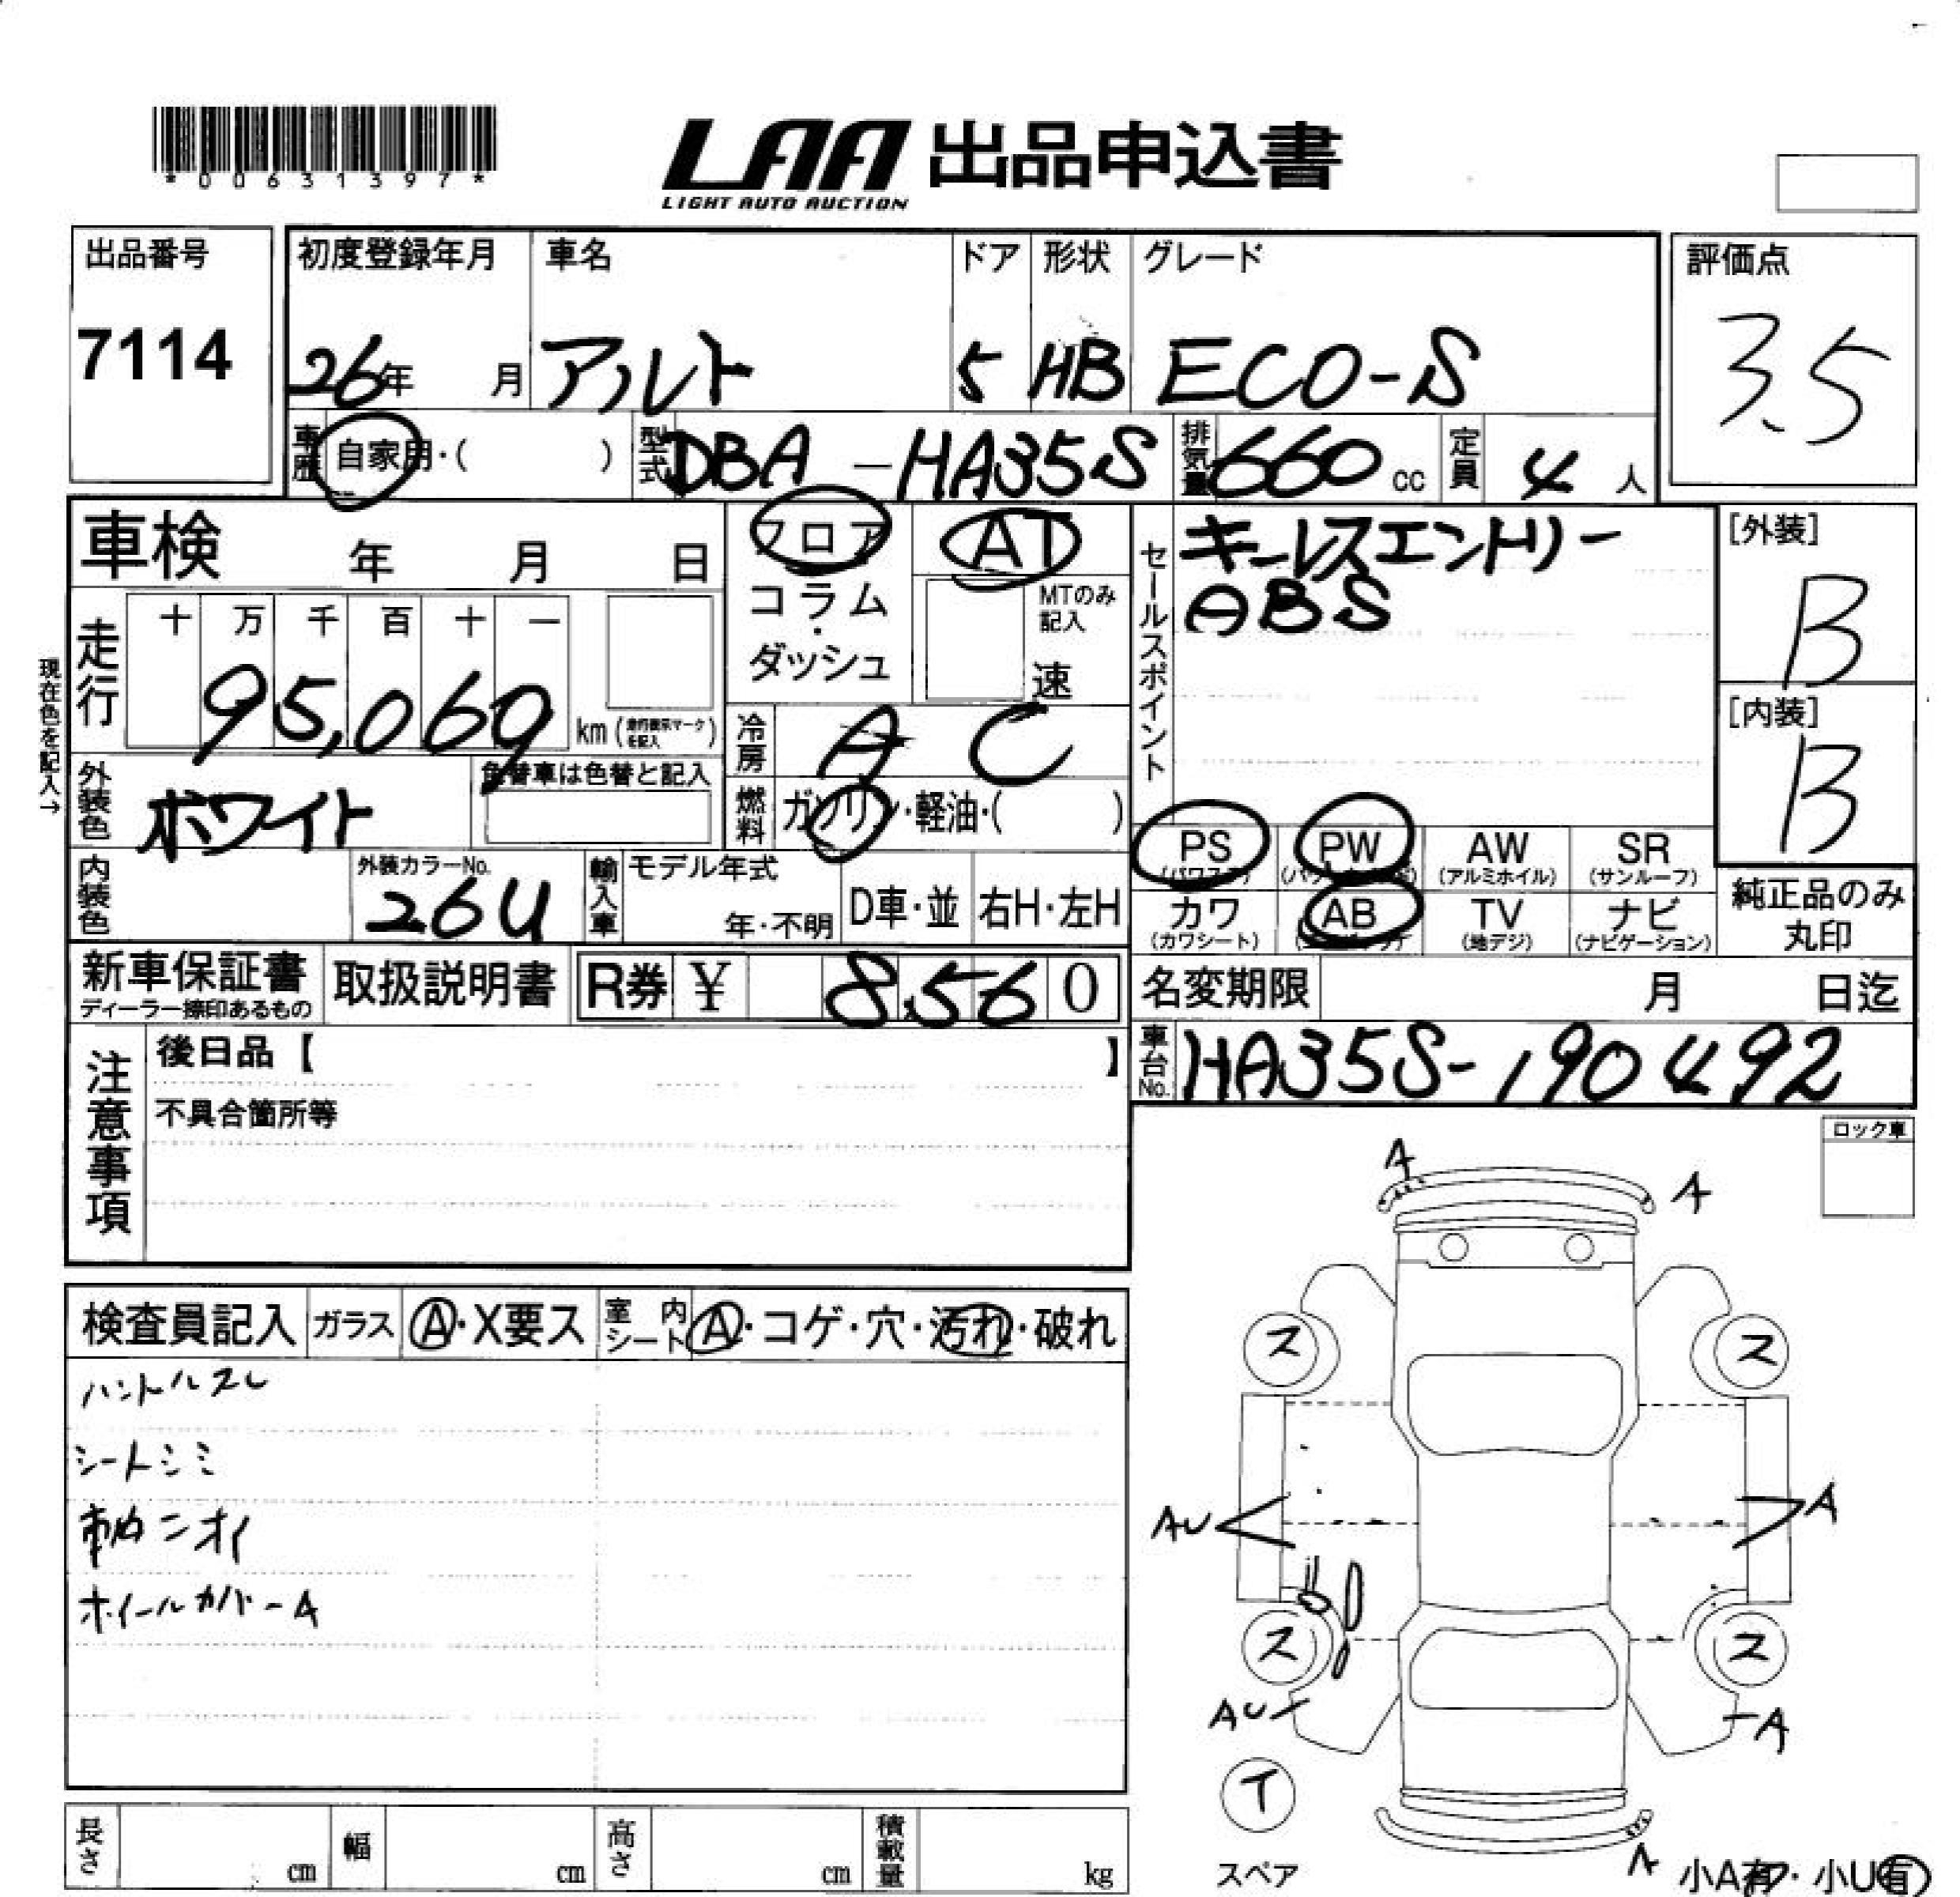 *00631397*
LAA 出品申込書
LIGHT AUTO AUCTION
出品番号
7114
初度登録年月
26年 月
車名
アルト
ドア
5
形状
HB
グレード
ECO-S
評価点
3.5
車歴 自家用・( )
型式 DBA-HA35S
排気量 660cc
定員 4人
車検 年 月 日
フロア
コラム・
ダッシュ
AT
MTのみ
記入
速
走行 十 万 千 百 十 一
95,069 km (
)
現在色を記入→
冷房 AC
外装色 ホワイト
色替車は色替と記入
燃料 ガソリン・軽油・( )
内装色
外装カラーNo.
26U
輸入車 モデル年式
年・不明
D車・並
右H・左H
セールスポイント
キーレスエントリー
ABS
[外装]
B
[内装]
B
PS PW AW SR
(アルミホイル) (サンルーフ)
カワ AB TV ナビ
(カワシート) (地デジ) (ナビゲーション)
純正品のみ
丸印
新車保証書
ディーラー捺印あるもの
取扱説明書
R券 ¥ 8,560
名変期限 月 日迄
車台No. HA35S-190492
注意事項
後日品【 】
不具合箇所等
ロック車
検査員記入 ガラス A・X要ス 室内シート A・コゲ・穴・汚れ・破れ
ハンドルスレ
シートシミ
車内ニオイ
ホイールカバーA
A
A
ス
ス
AU
A
ス
ス
AU
A
T
スペア
A
小A有・小U有
長さ cm 幅 cm 高さ cm 積載量 kg